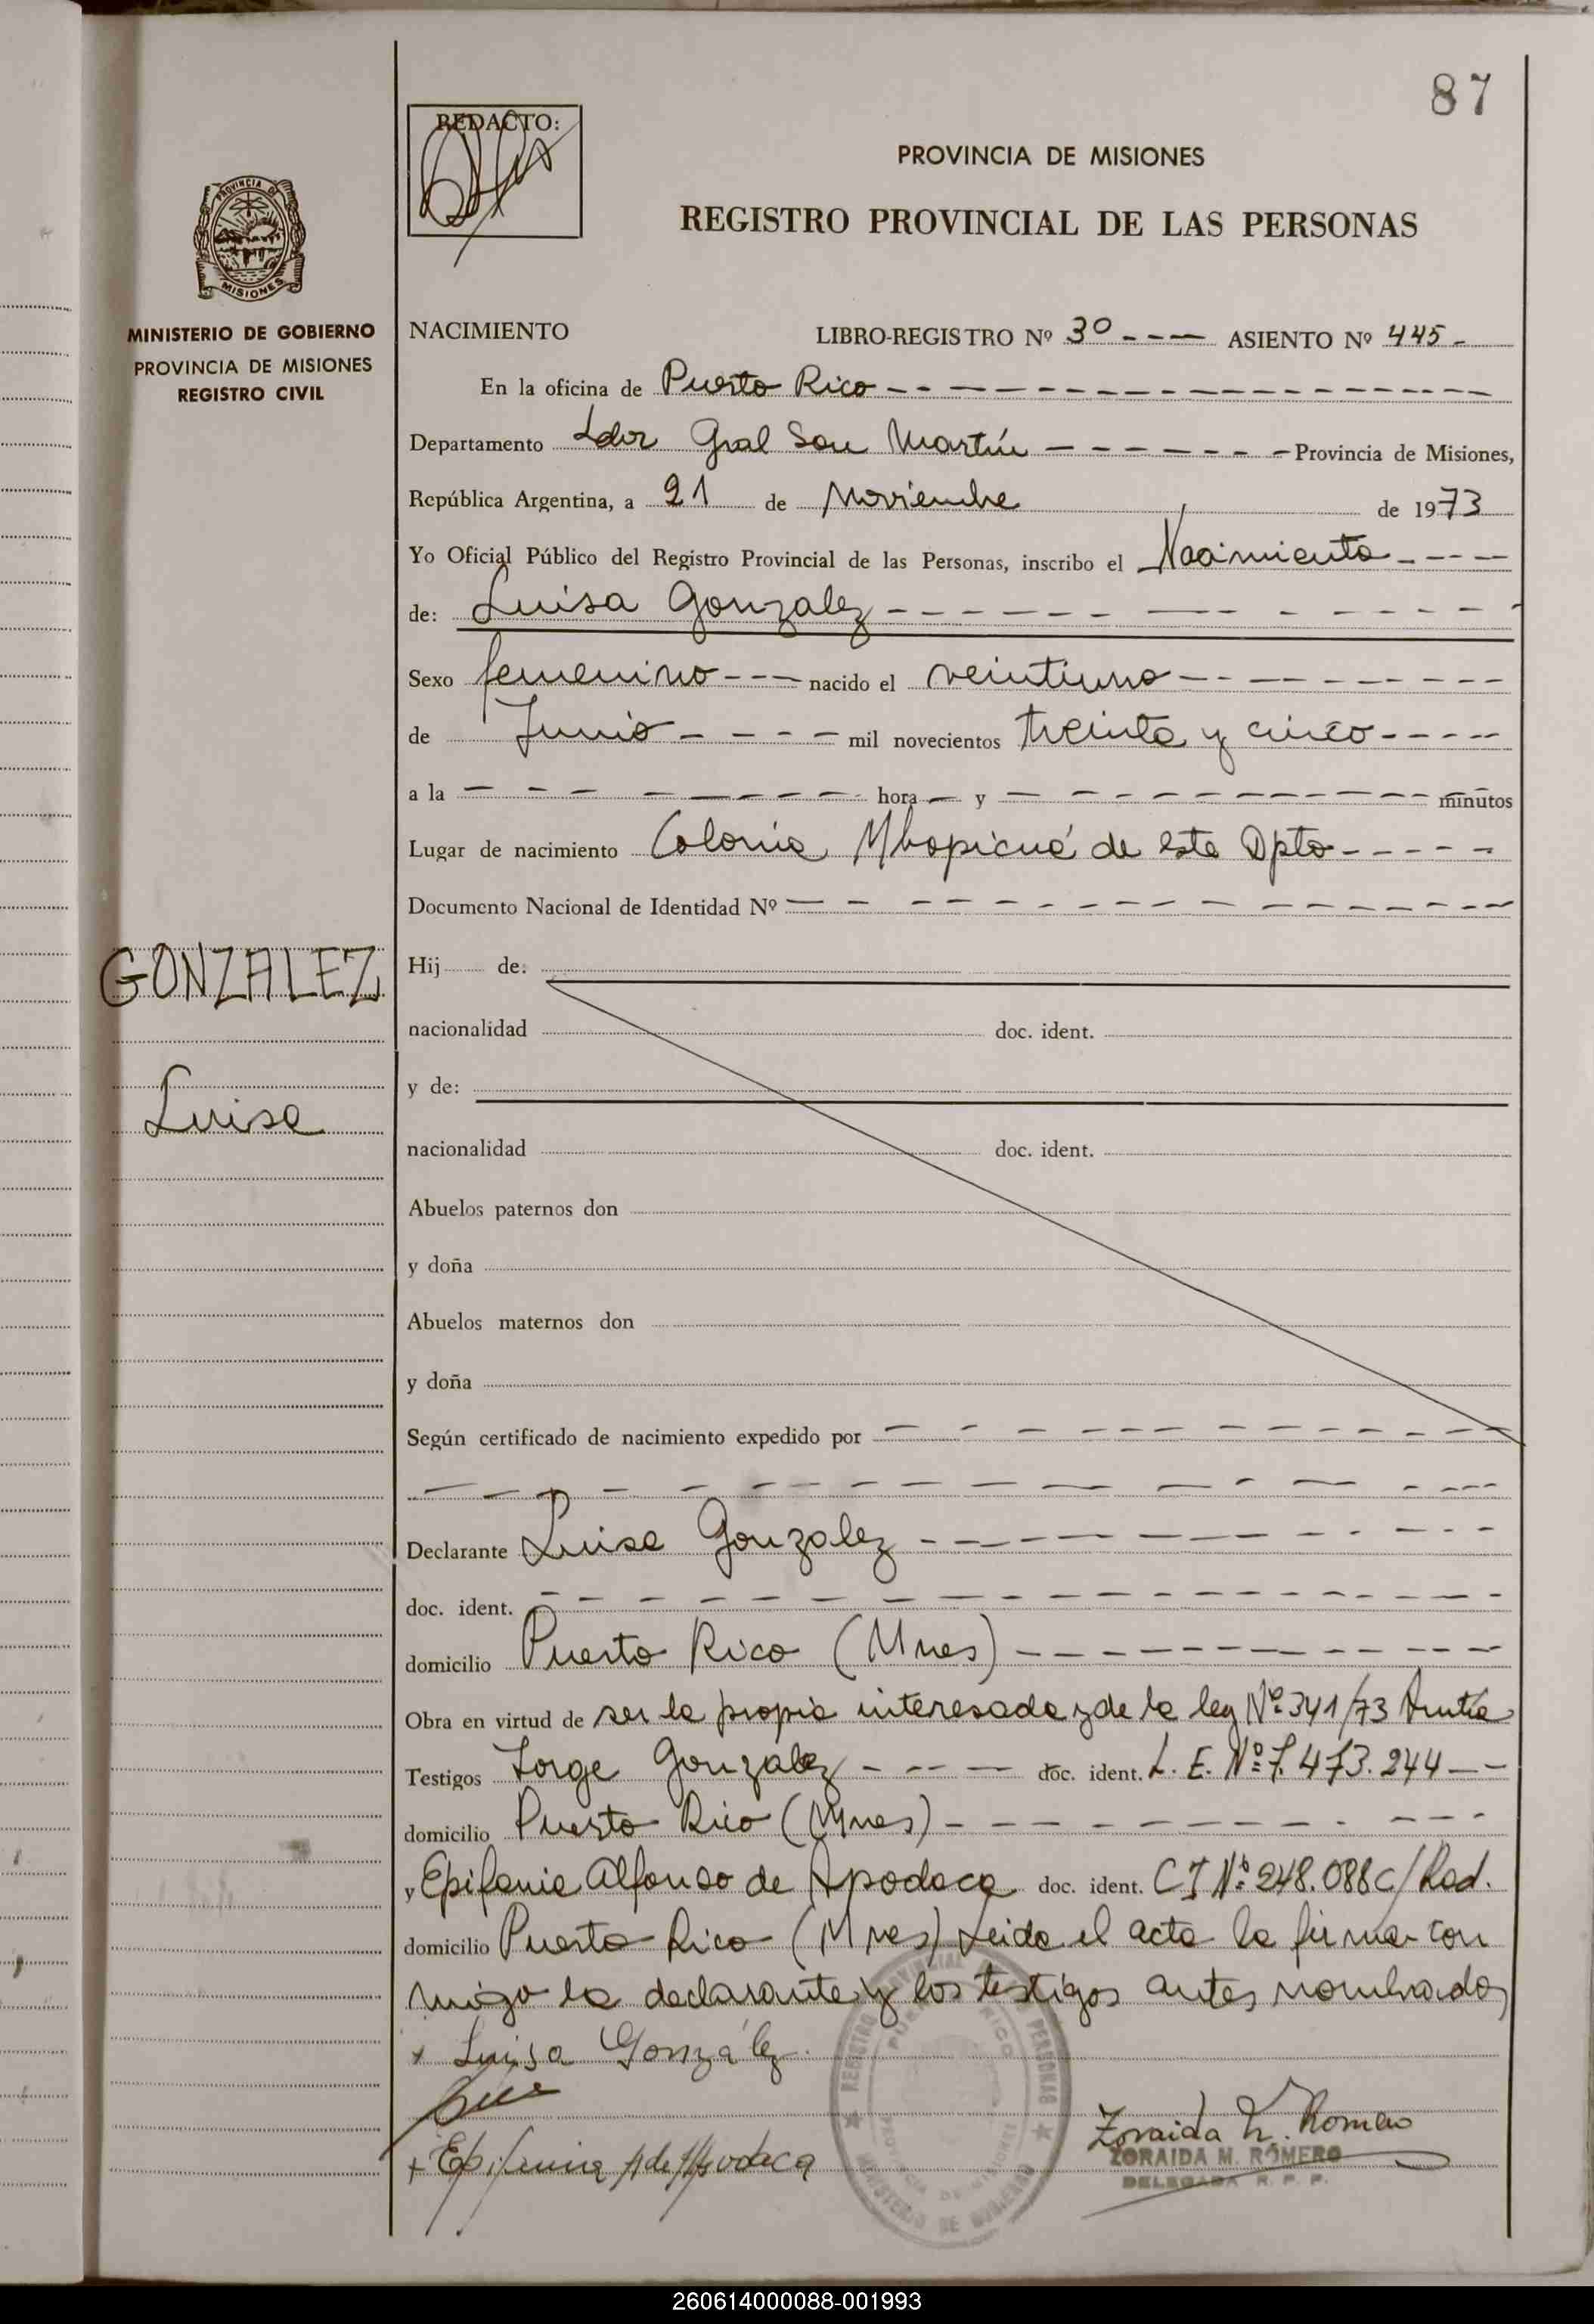 87
REDACTO:
PROVINCIA DE MISIONES
REGISTRO PROVINCIAL DE LAS PERSONAS
PROVINCIA DE
MISIONES
MINISTERIO DE GOBIERNO
PROVINCIA DE MISIONES
REGISTRO CIVIL
NACIMIENTO LIBRO-REGISTRO Nº 3º ---- ASIENTO Nº 445-
En la oficina de Puerto Rico
Departamento Ldor Gral San Martín ------ Provincia de Misiones,
República Argentina, a 21 de Noviembre de 1973
Yo Oficial Público del Registro Provincial de las Personas, inscribo el Nacimiento ----
de: Luisa Gonzalez
Sexo femenino --- nacido el veintiuno
de Junio ---- mil novecientos treinta y cinco ----
a la ---- hora -- y ---- minutos
Lugar de nacimiento Colonia Mbopicuá de este Dpto -----
Documento Nacional de Identidad Nº ----
GONZALEZ
Luisa
Hij de:
nacionalidad doc. ident.
y de:
nacionalidad doc. ident.
Abuelos paternos don
y doña
Abuelos maternos don
y doña
Según certificado de nacimiento expedido por ----
Declarante Luisa Gonzalez ----
doc. ident. ----
domicilio Puerto Rico (Mnes) ----
Obra en virtud de ser la propia interesada y de la ley Nº 341/73
Testigos Jorge Gonzalez ---- doc. ident. L. E. Nº 7.473.244 --
domicilio Puerto Rico (Mnes) ----
y Epifania Alfonso de Apodaca doc. ident. CI Nº 248.088 c/ Rad.
domicilio Puerto Rico (Mnes) Leida el acta la firma con
migo la declarante y los testigos antes nombrados
x Luisa González
+ Epifania A de Apodaca
REGISTRO PROVINCIAL DE LAS PERSONAS
PUERTO RICO
PROVINCIA DE MISIONES
MINISTERIO DE GOBIERNO
Zoraida M. Romero
ZORAIDA M. ROMERO
DELEGADA R. P. P.
260614000088-001993